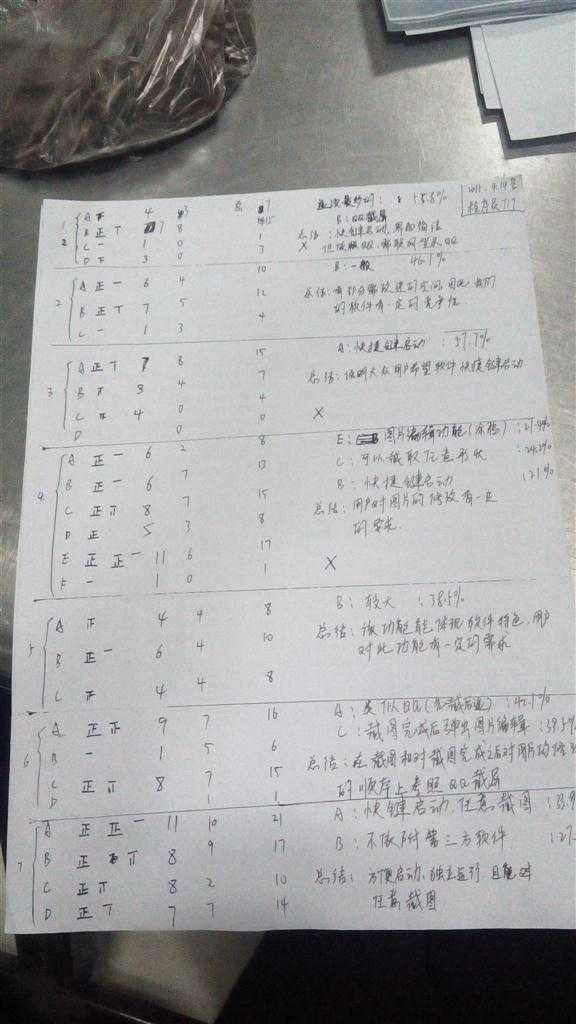 A 4 3 总 7 最多的: 55.8% 2011.4.14
B 正丅 7 8 15 B: QQ截屏
C 一 1 0 1 总结: 快捷启动, 界面简洁
D 3 0 3 X QQ, 登录QQ
2
A 正一 6 4 10 B: 一般 46.1%
B 正丅 7 5 12 总结: 有部分需改进的空间, 因此我们
C 一 1 3 4 的软件有一定的竞争性
3
A 正丅 7 8 15 A: 快捷键启动 : 57.7%
B 3 4 7 总结: 说明大众用户希望软件快捷键启动
C 4 0 4
D 0 0 X
4
A 正一 6 2 8 E: 图片编辑功能(涂鸦) : 27.4%
B 正一 6 7 13 C: 可以截取任意形状 : 24.2%
C 正 8 7 15 B: 快捷键启动 : 21%
D 正 5 3 8 总结: 用户对图片的修改有一定
的要求.
E 正正一 11 6 17
F 一 1 0 1 X
5
A 4 4 8 B: 较大 : 38.5%
B 正一 6 4 10 总结: 该功能能体现软件特色, 用户
对此功能有一定的需求
C 4 4 8
6
A 正 9 7 16 A: 类似QQ : 42.1%
B 一 1 5 6 C: 截图完成后弹出图片编辑 : 39.5%
C 正 8 7 15 总结: 在截图和对截图完成后对图片
D 1 1 的顺序上参照QQ截屏
7
A 正正一 11 10 21 A: 快捷键启动, 任意截图 : 33.9
B 正 8 9 17 B: 不依附第三方软件 : 27.
C 正 8 2 10 总结: 方便启动, 独立运行, 且能对
D 正丅 7 7 14 任意截图